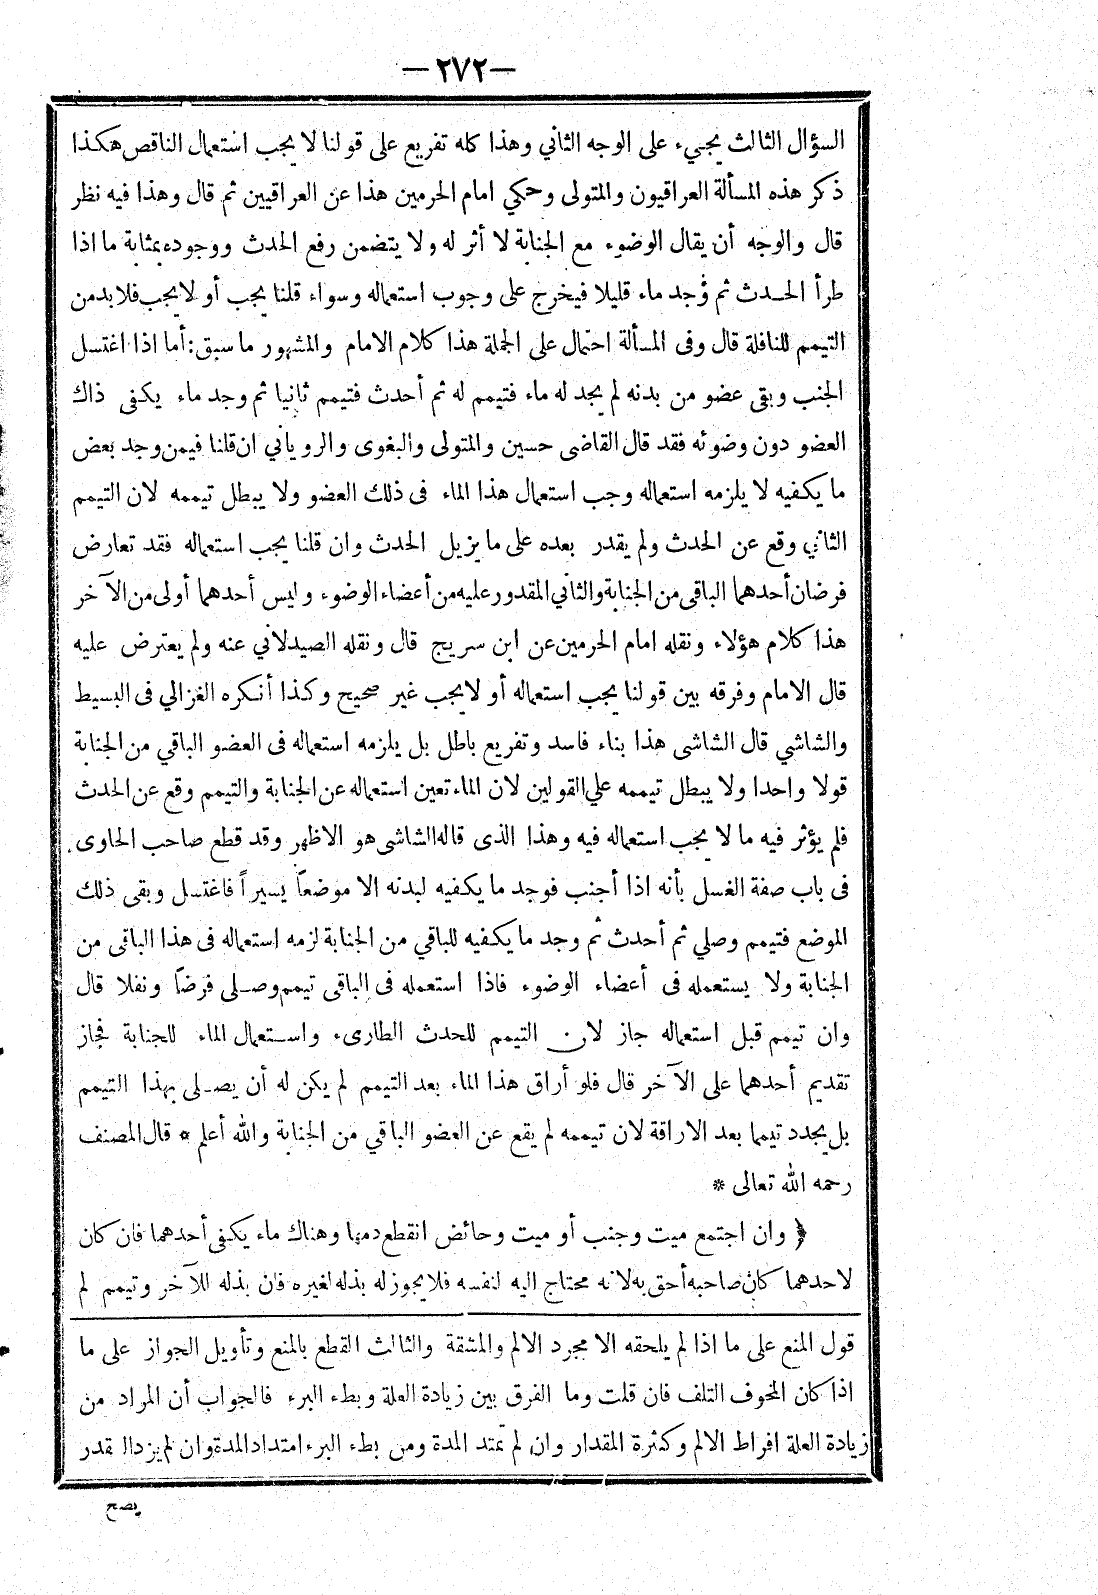 —٢٧٢—
السؤال الثالث يجيء على الوجه الثاني وهذا كله تفريع على قولنا لا يجب استعمال الناقص هكذا
ذكر هذه المسألة العراقيون والمتولى وحكي امام الحرمين هذا عن العراقيين ثم قال وهذا فيه نظر
قال والوجه أن يقال الوضوء مع الجنابة لا أثر له ولا يتضمن رفع الحدث ووجوده بمثابة ما اذا
طرأ الحدث ثم وُجد ماء قليلا فيخرج على وجوب استعماله وسواء قلنا يجب أو لا يجب فلا بد من
التيمم للنافلة قال وفى المسألة احتمال على الجملة هذا كلام الامام والمشهور ما سبق: أما اذا اغتسل
الجنب وبقى عضو من بدنه لم يجد له ماء فتيمم له ثم أحدث فتيمم ثانيا ثم وجد ماء يكفى ذاك
العضو دون وضوئه فقد قال القاضى حسين والمتولى والبغوى والروياني ان قلنا فيمن وجد بعض
ما يكفيه لا يلزمه استعماله وجب استعمال هذا الماء فى ذلك العضو ولا يبطل تيممه لان التيمم
الثاني وقع عن الحدث ولم يقدر بعده على ما يزيل الحدث وان قلنا يجب استعماله فقد تعارض
فرضان أحدهما الباقى من الجنابة والثاني المقدور عليه من أعضاء الوضوء وليس أحدهما أولى من الآخر
هذا كلام هؤلاء ونقله امام الحرمين عن ابن سريج قال ونقله الصيدلاني عنه ولم يعترض عليه
قال الامام وفرقه بين قولنا يجب استعماله أو لا يجب غير صحيح وكذا أنكره الغزالي فى البسيط
والشاشي قال الشاشى هذا بناء فاسد وتفريع باطل بل يلزمه استعماله فى العضو الباقي من الجنابة
قولا واحدا ولا يبطل تيممه علي القولين لان الماء تعين استعماله عن الجنابة والتيمم وقع عن الحدث
فلم يؤثر فيه ما لا يجب استعماله فيه وهذا الذى قاله الشاشى هو الاظهر وقد قطع صاحب الحاوى
فى باب صفة الغسل بأنه اذا أجنب فوجد ما يكفيه لبدنه الا موضعاً يسيراً فاغتسل وبقى ذلك
الموضع فتيمم وصلي ثم أحدث ثم وجد ما يكفيه للباقي من الجنابة لزمه استعماله فى هذا الباقى من
الجنابة ولا يستعمله فى أعضاء الوضوء فاذا استعمله فى الباقى تيمم وصلى فرضاً ونفلا قال
وان تيمم قبل استعماله جاز لان التيمم للحدث الطارىء واستعمال الماء للجنابة فجاز
تقديم أحدهما على الآخر قال فلو أراق هذا الماء بعد التيمم لم يكن له أن يصلى بهذا التيمم
بل يجدد تيمما بعد الاراقة لان تيممه لم يقع عن العضو الباقي من الجنابة والله أعلم * قال المصنف
رحمه الله تعالى *
﴿ وان اجتمع ميت وجنب أو ميت وحائض انقطع دمها وهناك ماء يكفى أحدهما فان كان
لاحدهما كان صاحبه أحق به لانه محتاج اليه لنفسه فلا يجوز له بذله لغيره فان بذله للآخر وتيمم لم
قول المنع على ما اذا لم يلحقه الا مجرد الالم والمشقة والثالث القطع بالمنع وتأويل الجواز على ما
اذا كان المخوف التلف فان قلت وما الفرق بين زيادة العلة وبطء البرء فالجواب أن المراد من
زيادة العلة افراط الالم وكثرة المقدار وان لم تمتد المدة ومن بطء البرء امتداد المدة وان لم يزد القدر
يصح